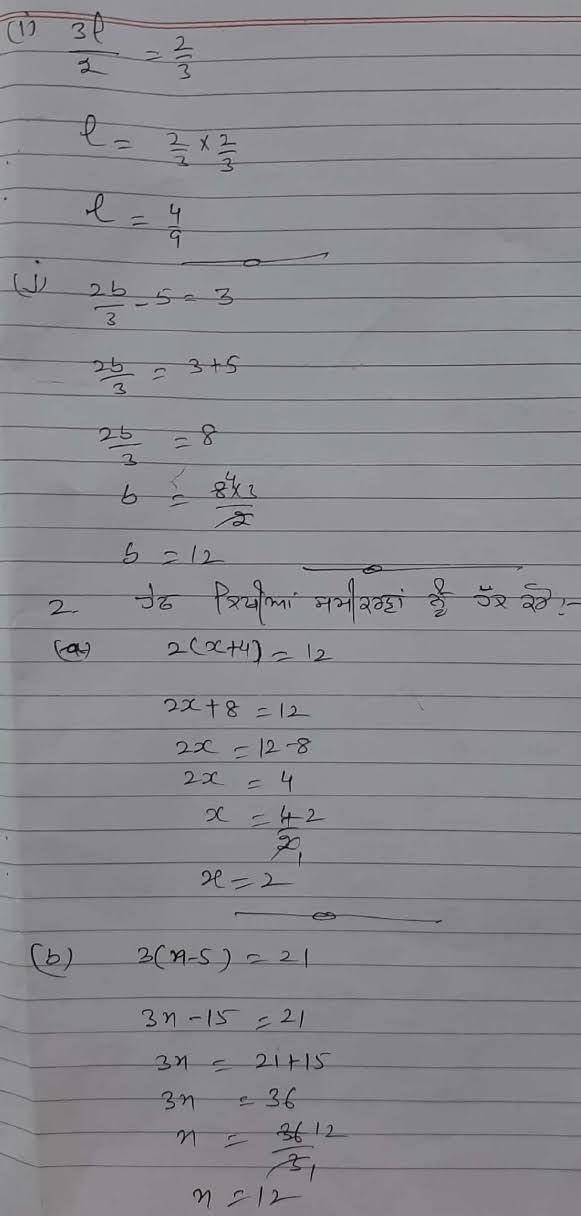 (i) 3l/2 = 2/3
l = 2/3 × 2/3
l = 4/9
(j) 2b/3 - 5 = 3
2b/3 = 3+5
2b/3 = 8
b = 8 4×3/2
b = 12
2. ਹੇਠ ਲਿਖੀਆਂ ਸਮੀਕਰਣਾਂ ਨੂੰ ਹੱਲ ਕਰੋ:-
(a) 2(x+4) = 12
2x+8 = 12
2x = 12-8
2x = 4
x = 4 2/2 1
x = 2
(b) 3(n-5) = 21
3n-15 = 21
3n = 21+15
3n = 36
n = 36 12/3 1
n = 12